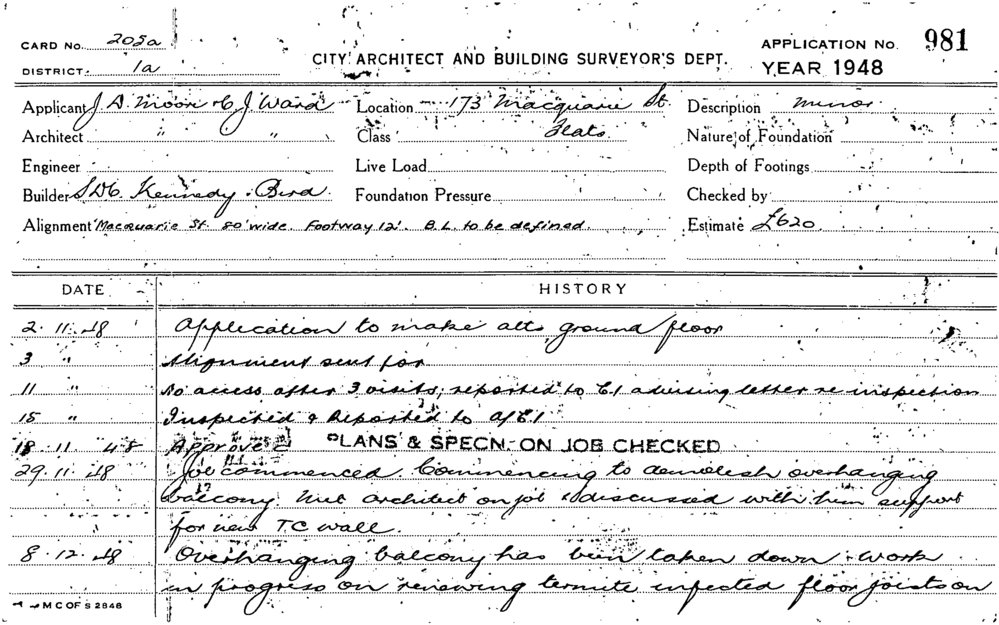 CARD No. 205a
DISTRICT. 1a
CITY ARCHITECT AND BUILDING SURVEYOR'S DEPT.
APPLICATION No. 981
YEAR 1948
Applicant J. A. Moore & C. J. Ward Location 173 Macquarie St. Description minor
Architect " " Class Flats Nature of Foundation
Engineer Live Load Depth of Footings
Builder Kennedy & Bird Foundation Pressure Checked by
Alignment Macquarie St 80' wide. Footway 12'. B.L. to be defined. Estimate £620
DATE HISTORY
2.11.48 Application to make alts ground floor
3 " Alignment sent for
11 " No access after 3 visits; reported to C.I. advising letter re inspection
15 " Inspected & Reported to A/C.I
18.11.48 Approved PLANS & SPECN. ON JOB CHECKED
29.11.48 Job commenced. Commencing to demolish overhanging
balcony. Met architect on job & discussed with him support
for new T.C wall.
8.12.48 Overhanging balcony has been taken down. Work
in progress on renewing termite infected floor joists on
M C OF S 2848